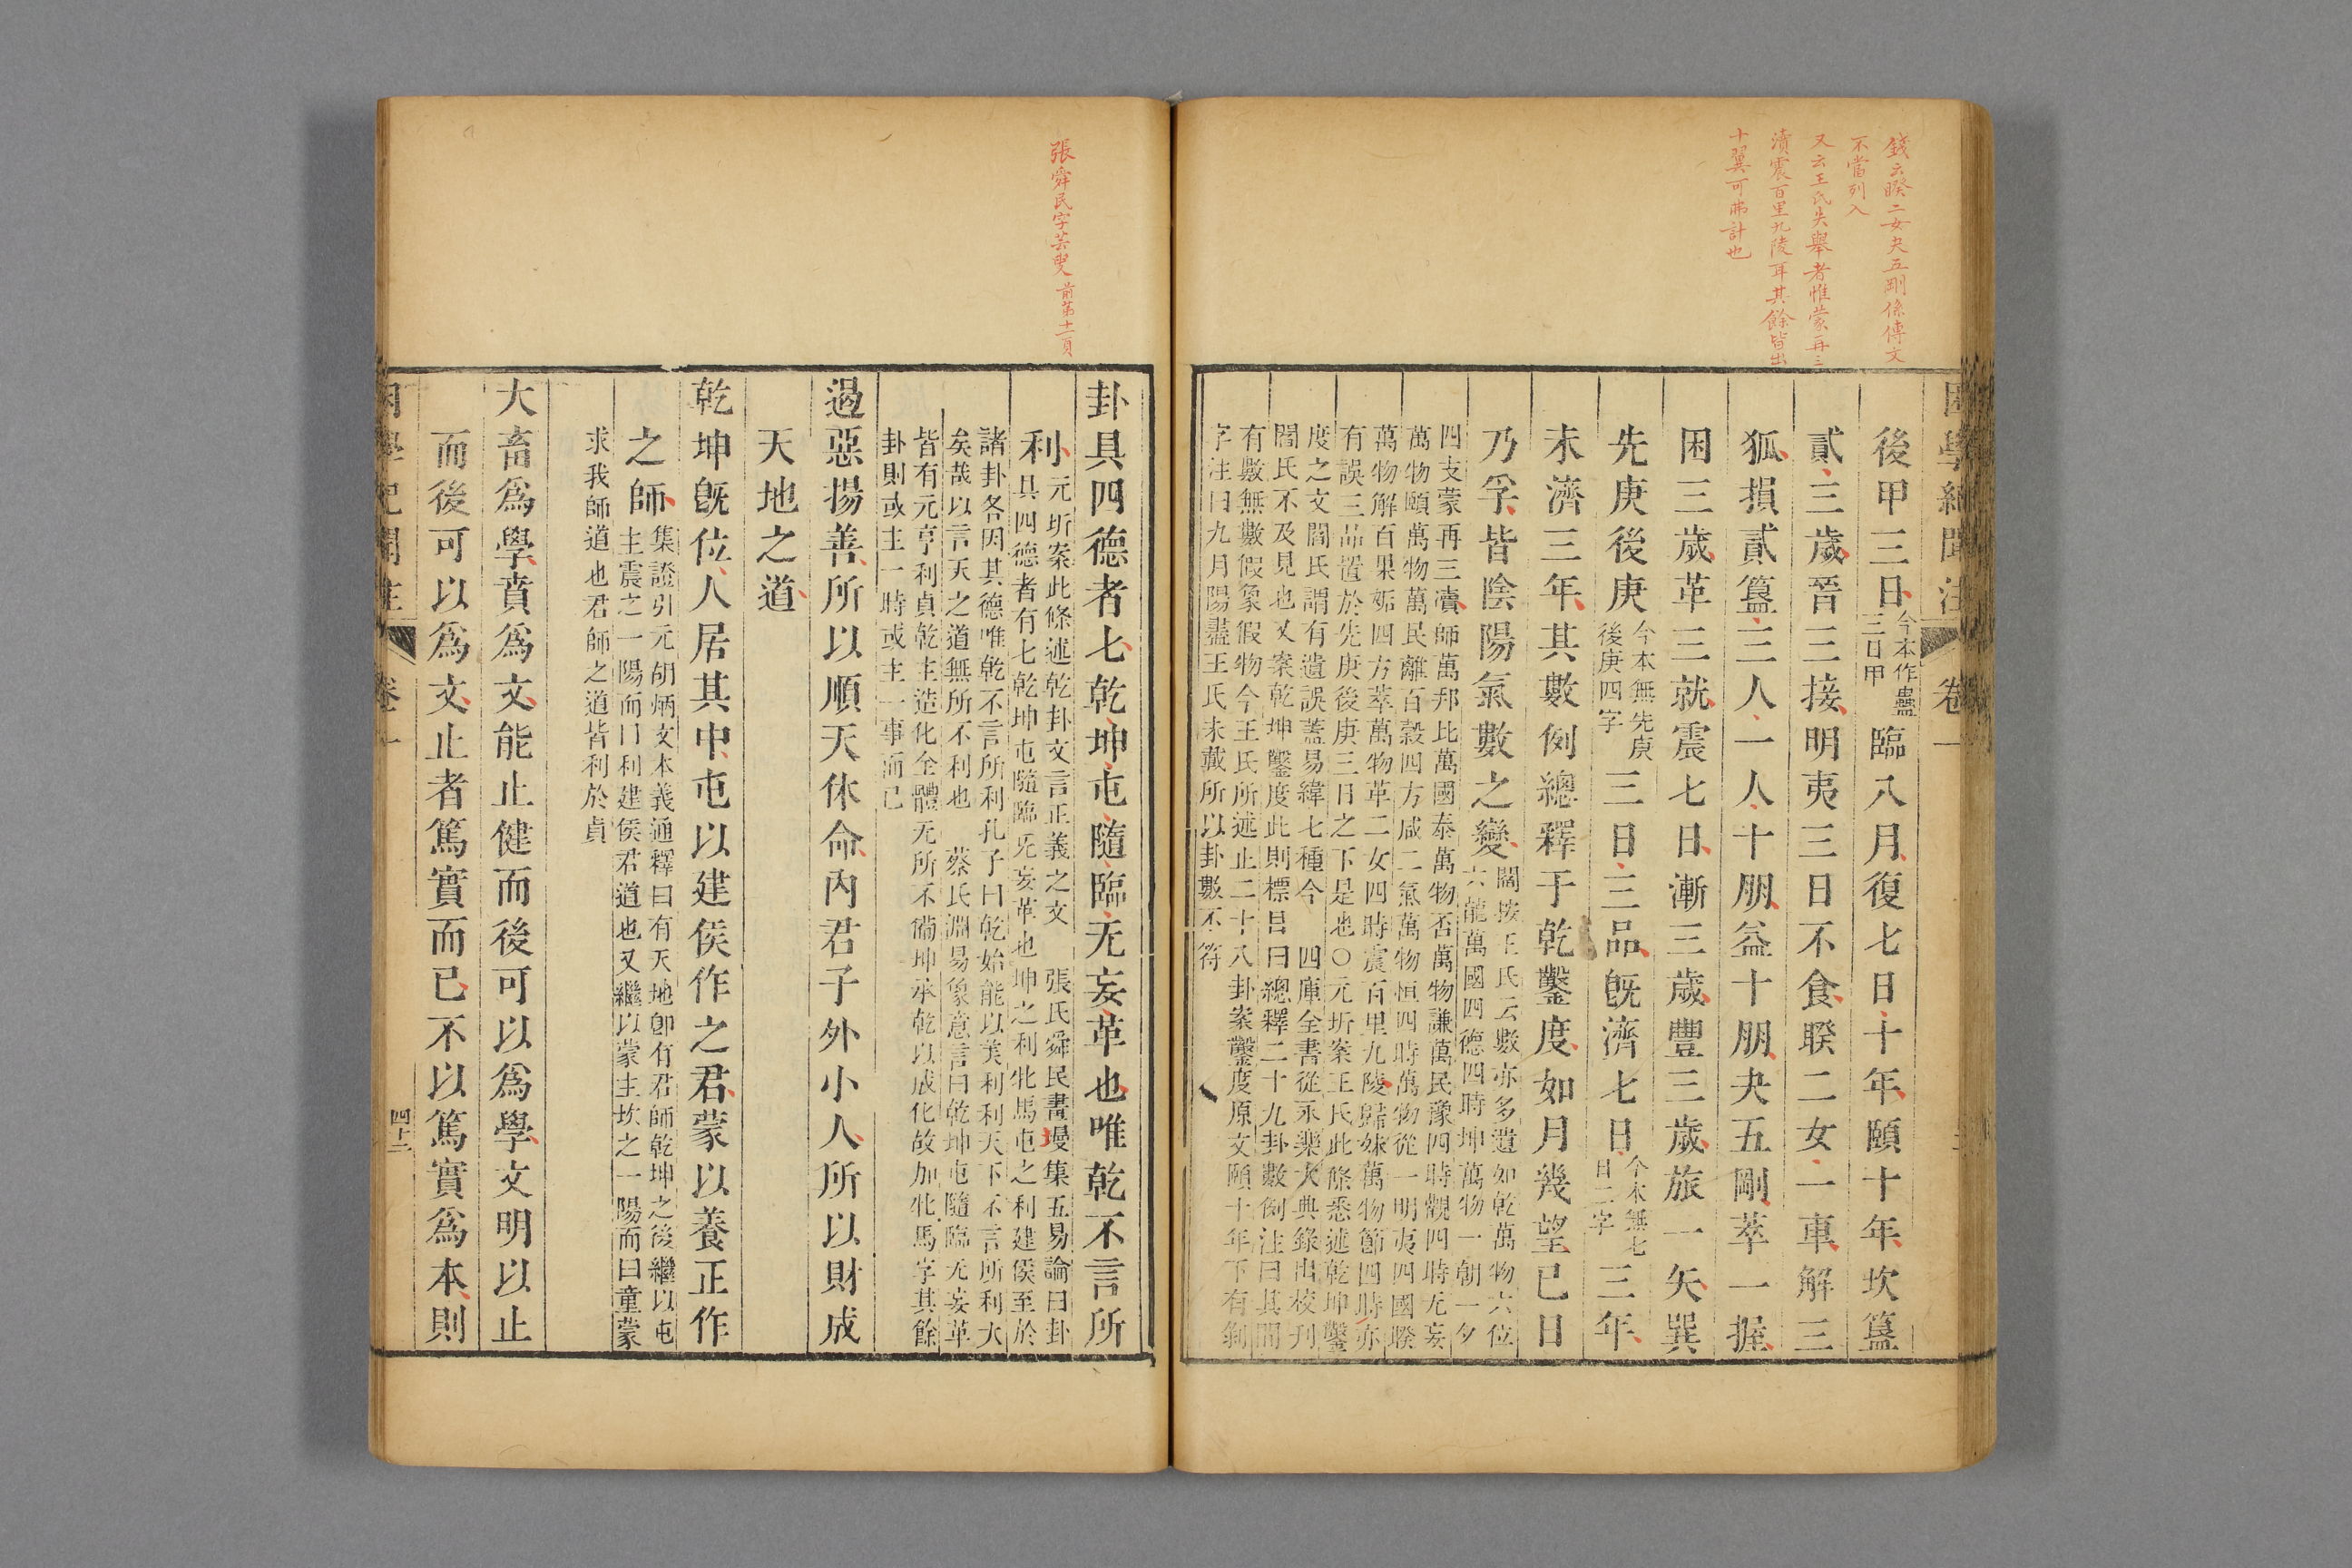 錢云睽二女夬五剛係傳文
不當列入
又云王氏失舉者惟蒙再三
瀆震百里九陵耳其餘皆出
十翼可弗計也
困學紀聞注 卷一
後甲三日今本作蠱三日甲臨八月復七日十年頤十年坎簋
貳三歲晉三接明夷三日不食睽二女一車解三
狐損貳簋三人一人十朋益十朋夬五剛萃一握
困三歲革三就震七日漸三歲豐三歲旅一矢巽
先庚後庚今本無先庚後庚四字三日三品旣濟七日今本無七日二字三年
未濟三年其數例總釋于乾鑿度如月幾望已日
乃孚皆陰陽氣數之變閻按王氏云數亦多遺如乾萬物六位
六龍萬國四德四時坤萬物一朝一夕
四支蒙再三瀆師萬邦比萬國泰萬物否萬物謙萬民豫四時觀四時无妄
萬物頤萬物萬民離百穀四方咸二氣萬物恒四時萬物從一明夷四國睽
萬物解百果姤四方萃萬物革二女四時震百里九陵歸妹萬物節四時亦
有誤三品置於先庚後庚三日之下是也○元圻案王氏此條悉述乾坤鑿
度之文閻氏謂有遺誤蓋易緯七種今 四庫全書從永樂大典錄出校刊
閻氏不及見也又案乾坤鑿度此則標目曰總釋二十九卦數例注曰其間
有數無數假象假物今王氏所述止二十八卦案鑿度原文頤十年下有剝
字注曰九月陽盡王氏未載所以卦數不符
張舜民字芸叟 前第十一頁
卦具四德者七乾坤屯隨臨无妄革也唯乾不言所
利元圻案此條述乾卦文言正義之文 張氏舜民畫墁集五易論曰卦
具四德者有七乾坤屯隨臨无妄革也坤之利牝馬屯之利建侯至於
諸卦各因其德唯乾不言所利孔子曰乾始能以美利利天下不言所利大
矣哉以言天之道無所不利也 蔡氏淵易象意言曰乾坤屯隨臨无妄革
皆有元亨利貞乾主造化全體元所不備坤承乾以成化故加牝馬字其餘
卦則或主一時或主一事而已
遏惡揚善所以順天休命內君子外小人所以財成
天地之道
乾坤旣位人居其中屯以建侯作之君蒙以養正作
之師集證引元胡炳文本義通釋曰有天地卽有君師乾坤之後繼以屯
主震之一陽而曰利建侯君道也又繼以蒙主坎之一陽而曰童蒙
求我師道也君師之道皆利於貞
大畜爲學賁爲文能止健而後可以爲學文明以止
而後可以爲文止者篤實而已不以篤實爲本則
困學紀聞注 卷一 四十二